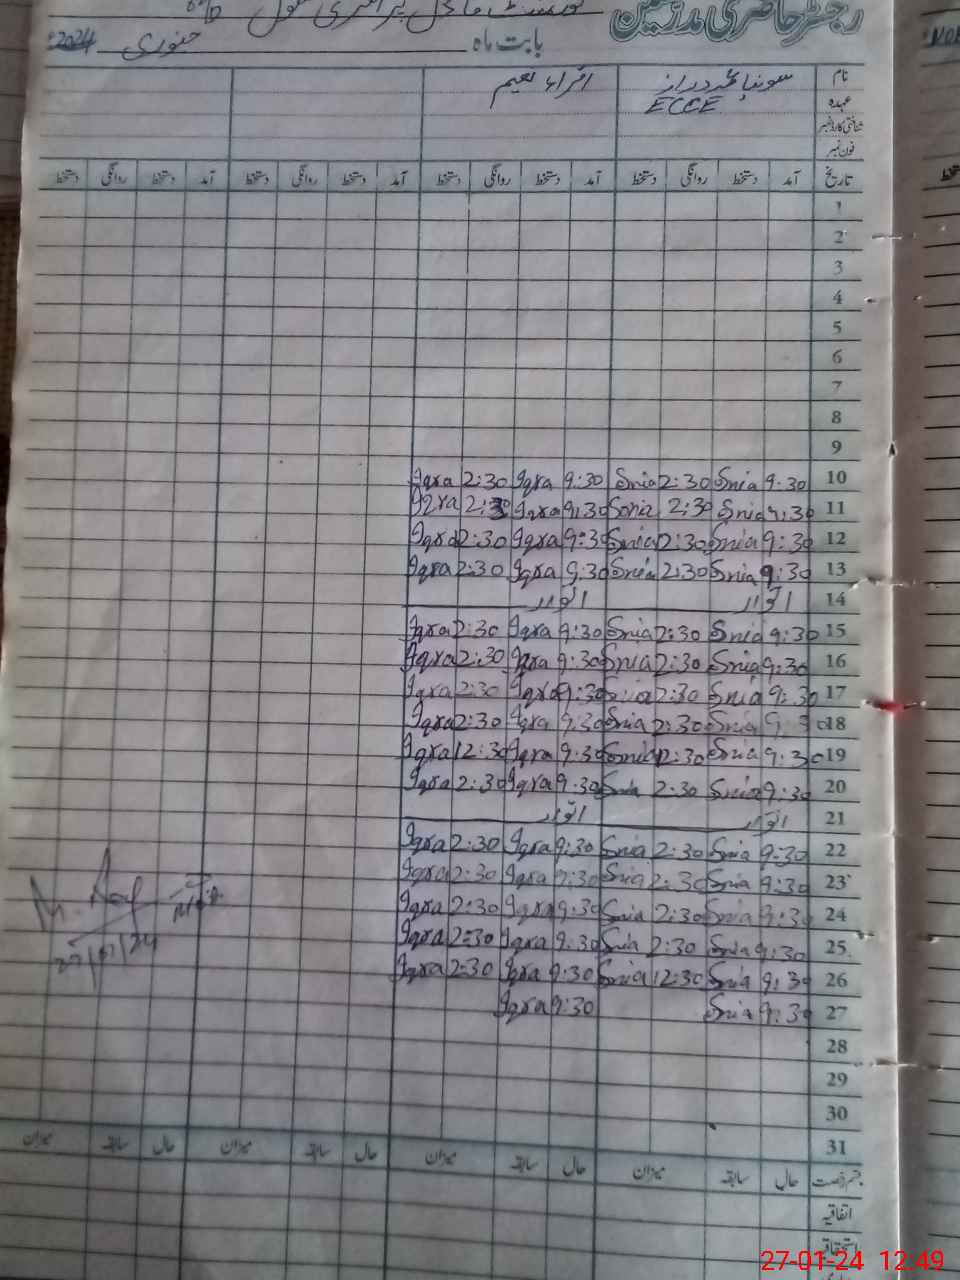 رجسٹر حاضری مدرسین
گورنمنٹ ماڈل پرائمری سکول
بابت ماہ جنوری 2024
نام اقراء نعیم
عہدہ ECCE
شناختی کارڈ نمبر
فون نمبر
تاریخ آمد دستخط روانگی دستخط آمد دستخط روانگی دستخط آمد دستخط روانگی دستخط آمد دستخط روانگی دستخط
1
2
3
4
5
6
7
8
9
Iqra 2:30 Iqra 9:30 Snia 2:30 Snia 9:30 10
Iqra 2:30 Iqra 9:30 Sonia 2:30 Snia 9:30 11
Iqra 2:30 Iqra 9:30 Snia 2:30 Snia 9:30 12
Iqra 2:30 Iqra 9:30 Snia 2:30 Snia 9:30 13
14 اتوار اتوار
Iqra 2:30 Iqra 9:30 Snia 2:30 Snia 9:30 15
Iqra 2:30 Iqra 9:30 Snia 2:30 Snia 9:30 16
Iqra 2:30 Iqra 9:30 Snia 2:30 Snia 9:30 17
Iqra 2:30 Iqra 9:30 Snia 2:30 Snia 9:30 18
Iqra 12:30 Iqra 9:30 Snia 12:30 Snia 9:30 19
Iqra 2:30 Iqra 9:30 Snia 2:30 Snia 9:30 20
21 اتوار اتوار
Iqra 2:30 Iqra 9:30 Snia 2:30 Snia 9:30 22
Iqra 2:30 Iqra 9:30 Snia 2:30 Snia 9:30 23
Iqra 2:30 Iqra 9:30 Snia 2:30 Snia 9:30 24
Iqra 2:30 Iqra 9:30 Snia 2:30 Snia 9:30 25
Iqra 2:30 Iqra 9:30 Snia 12:30 Snia 9:30 26
Iqra 9:30 Snia 9:30 27
28
29
30
31
قسم رخصت حال سابقہ میزان حال سابقہ میزان حال سابقہ میزان حال سابقہ میزان
اتفاقیہ
استحقاقیہ
27-01-24 12:49